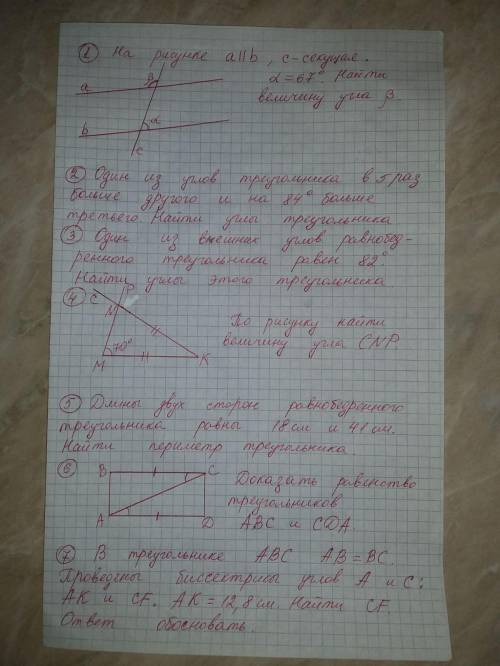 ① На рисунке a||b, c-секущая.
α=67°. Найти
величину угла β.
a
β
b
α
c
② Один из углов треугольника в 5 раз
больше другого и на 84° больше
третьего. Найти углы треугольника
③ Один из внешних углов равнобед-
ренного треугольника равен 82°.
Найти углы этого треугольника
④ C P
N
По рисунку найти
величину угла CNP.
70°
M K
⑤ Длины двух сторон равнобедренного
треугольника равны 18 см и 41 см.
Найти периметр треугольника
⑥ B C
Доказать равенство
треугольников
ABC и CDA.
A D
⑦ В треугольнике ABC AB=BC.
Проведены биссектрисы углов A и C:
AK и CF. AK=12,8 см. Найти CF.
Ответ обосновать.